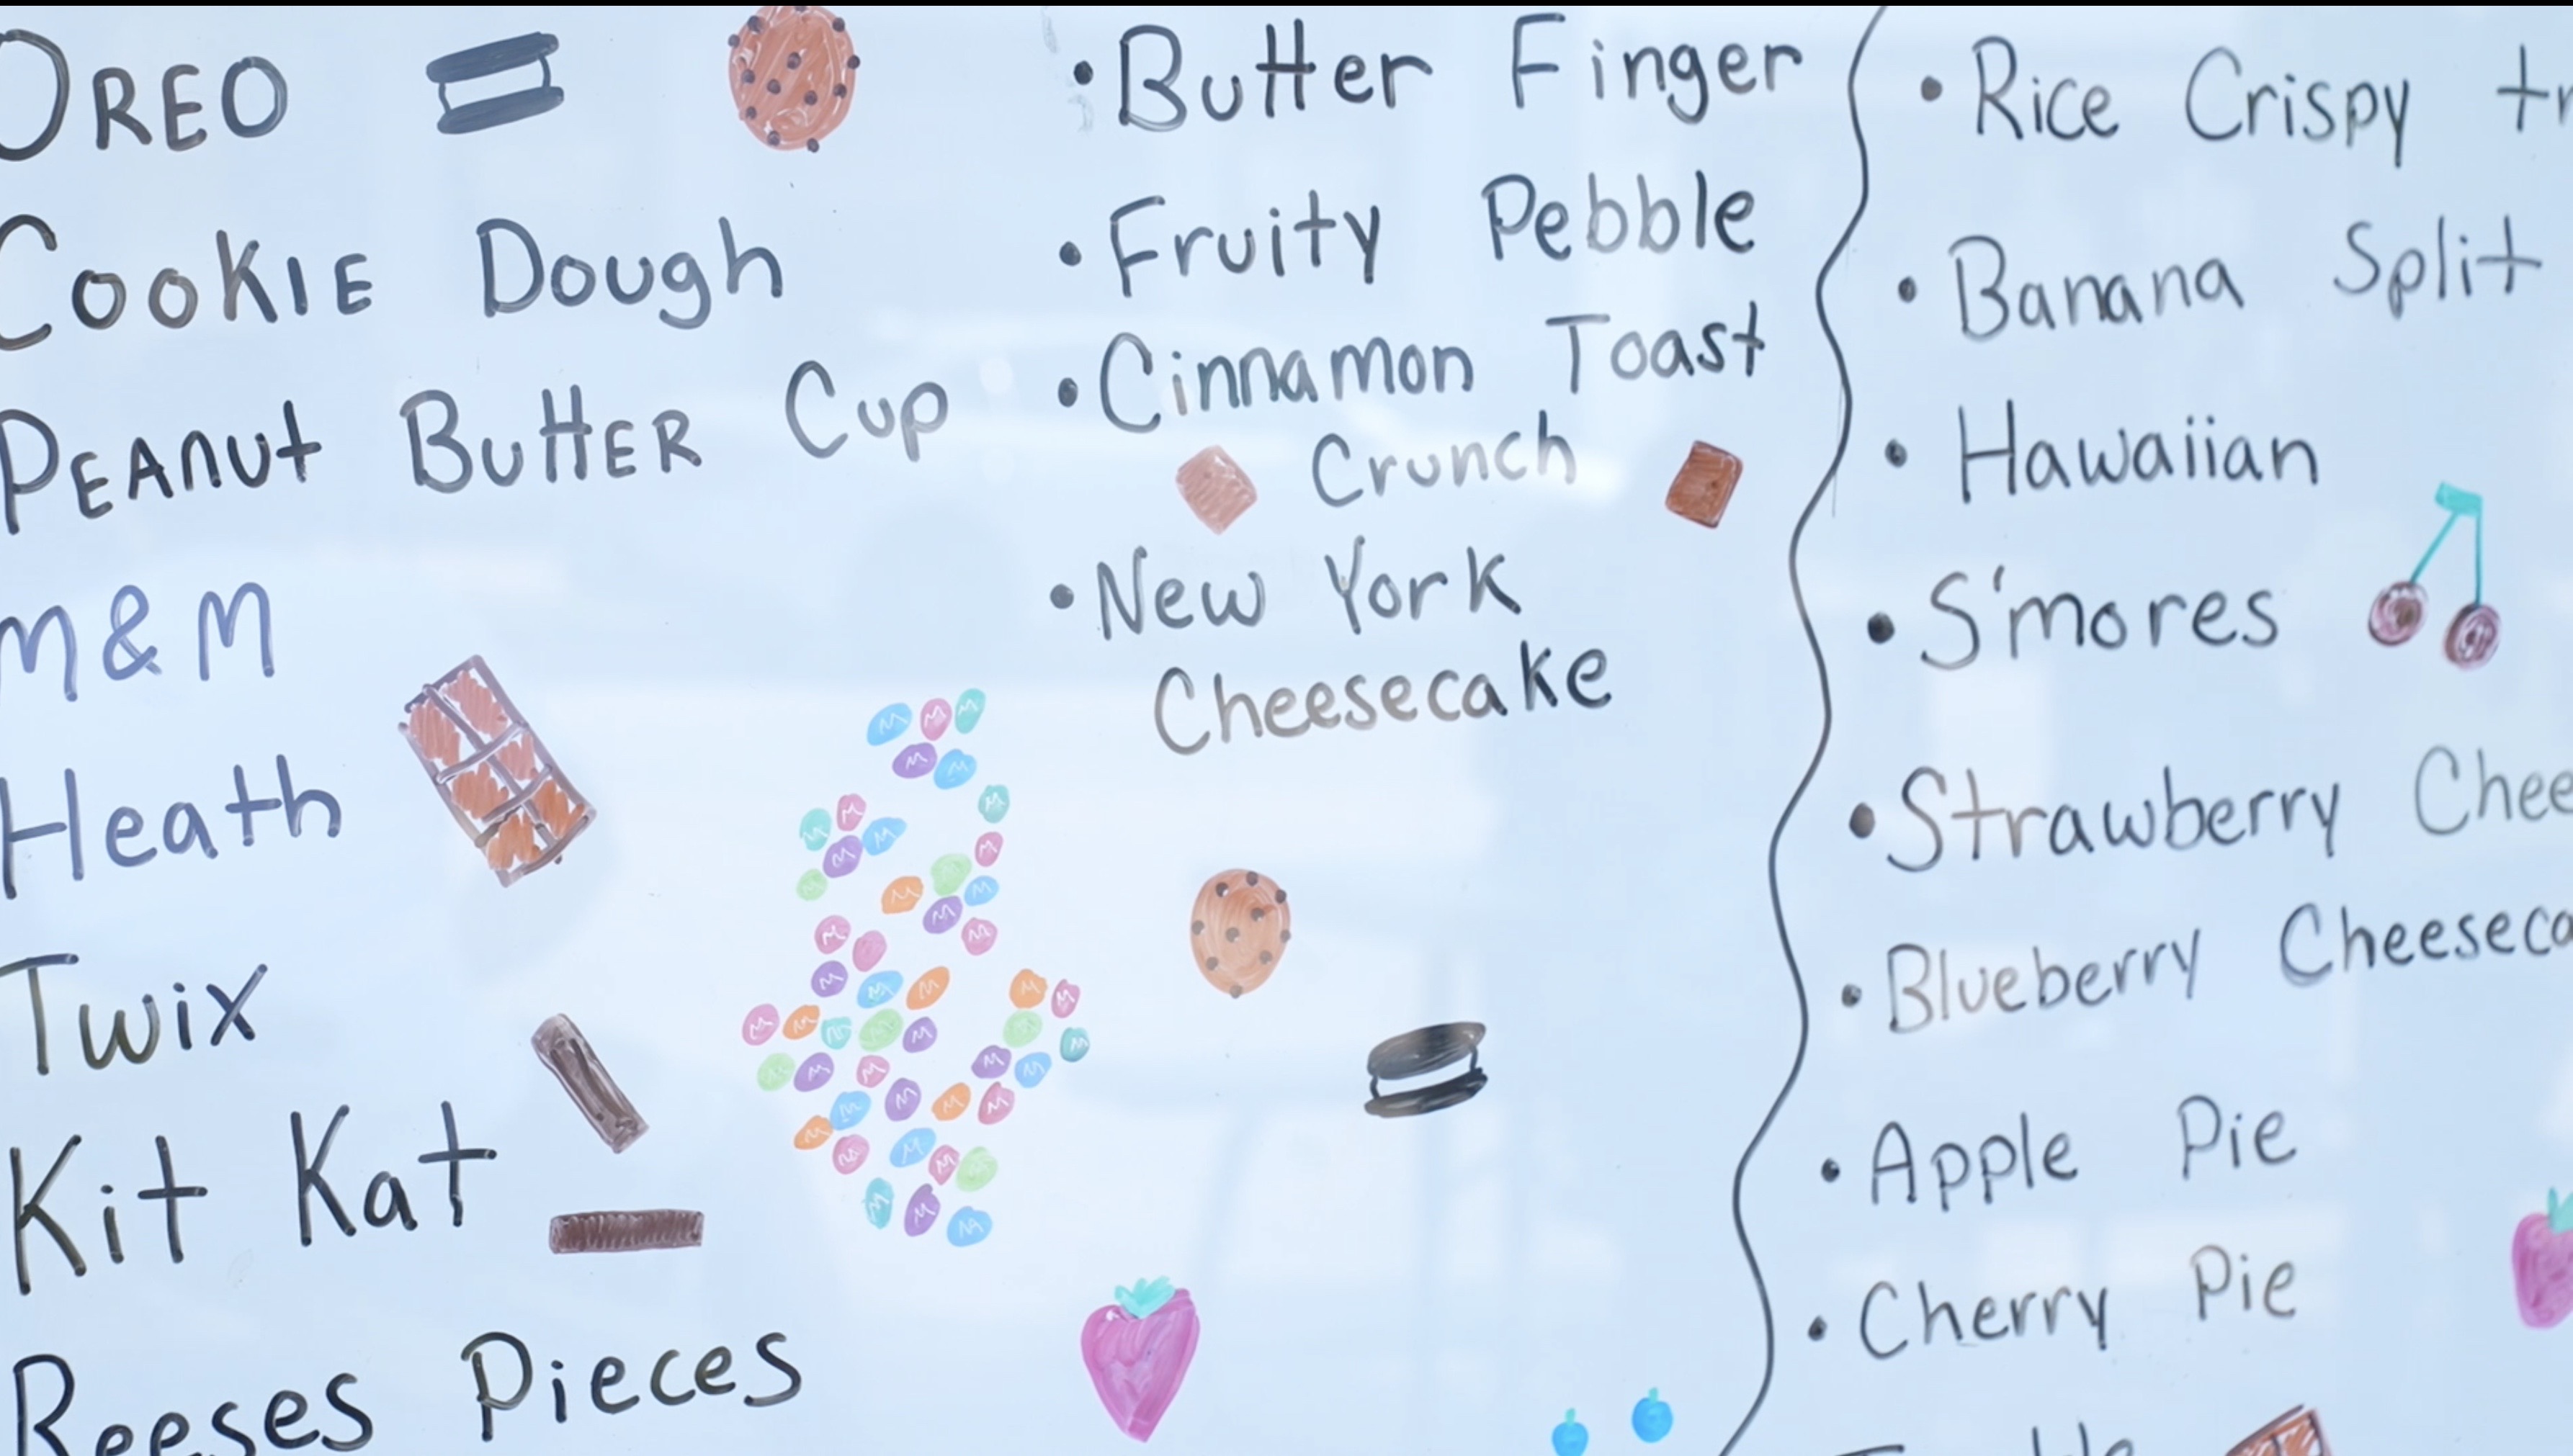 OREO
COOKIE Dough
PEANUt ButtER Cup
M&M
Heath
Twix
Kit Kat
Reeses Pieces
• Butter Finger
• Fruity Pebble
• Cinnamon Toast
Crunch
• New York
Cheesecake
• Rice Crispy tr
• Banana Split
• Hawaiian
• S'mores
• Strawberry Chee
• Blueberry Cheeseca
• Apple Pie
• Cherry Pie